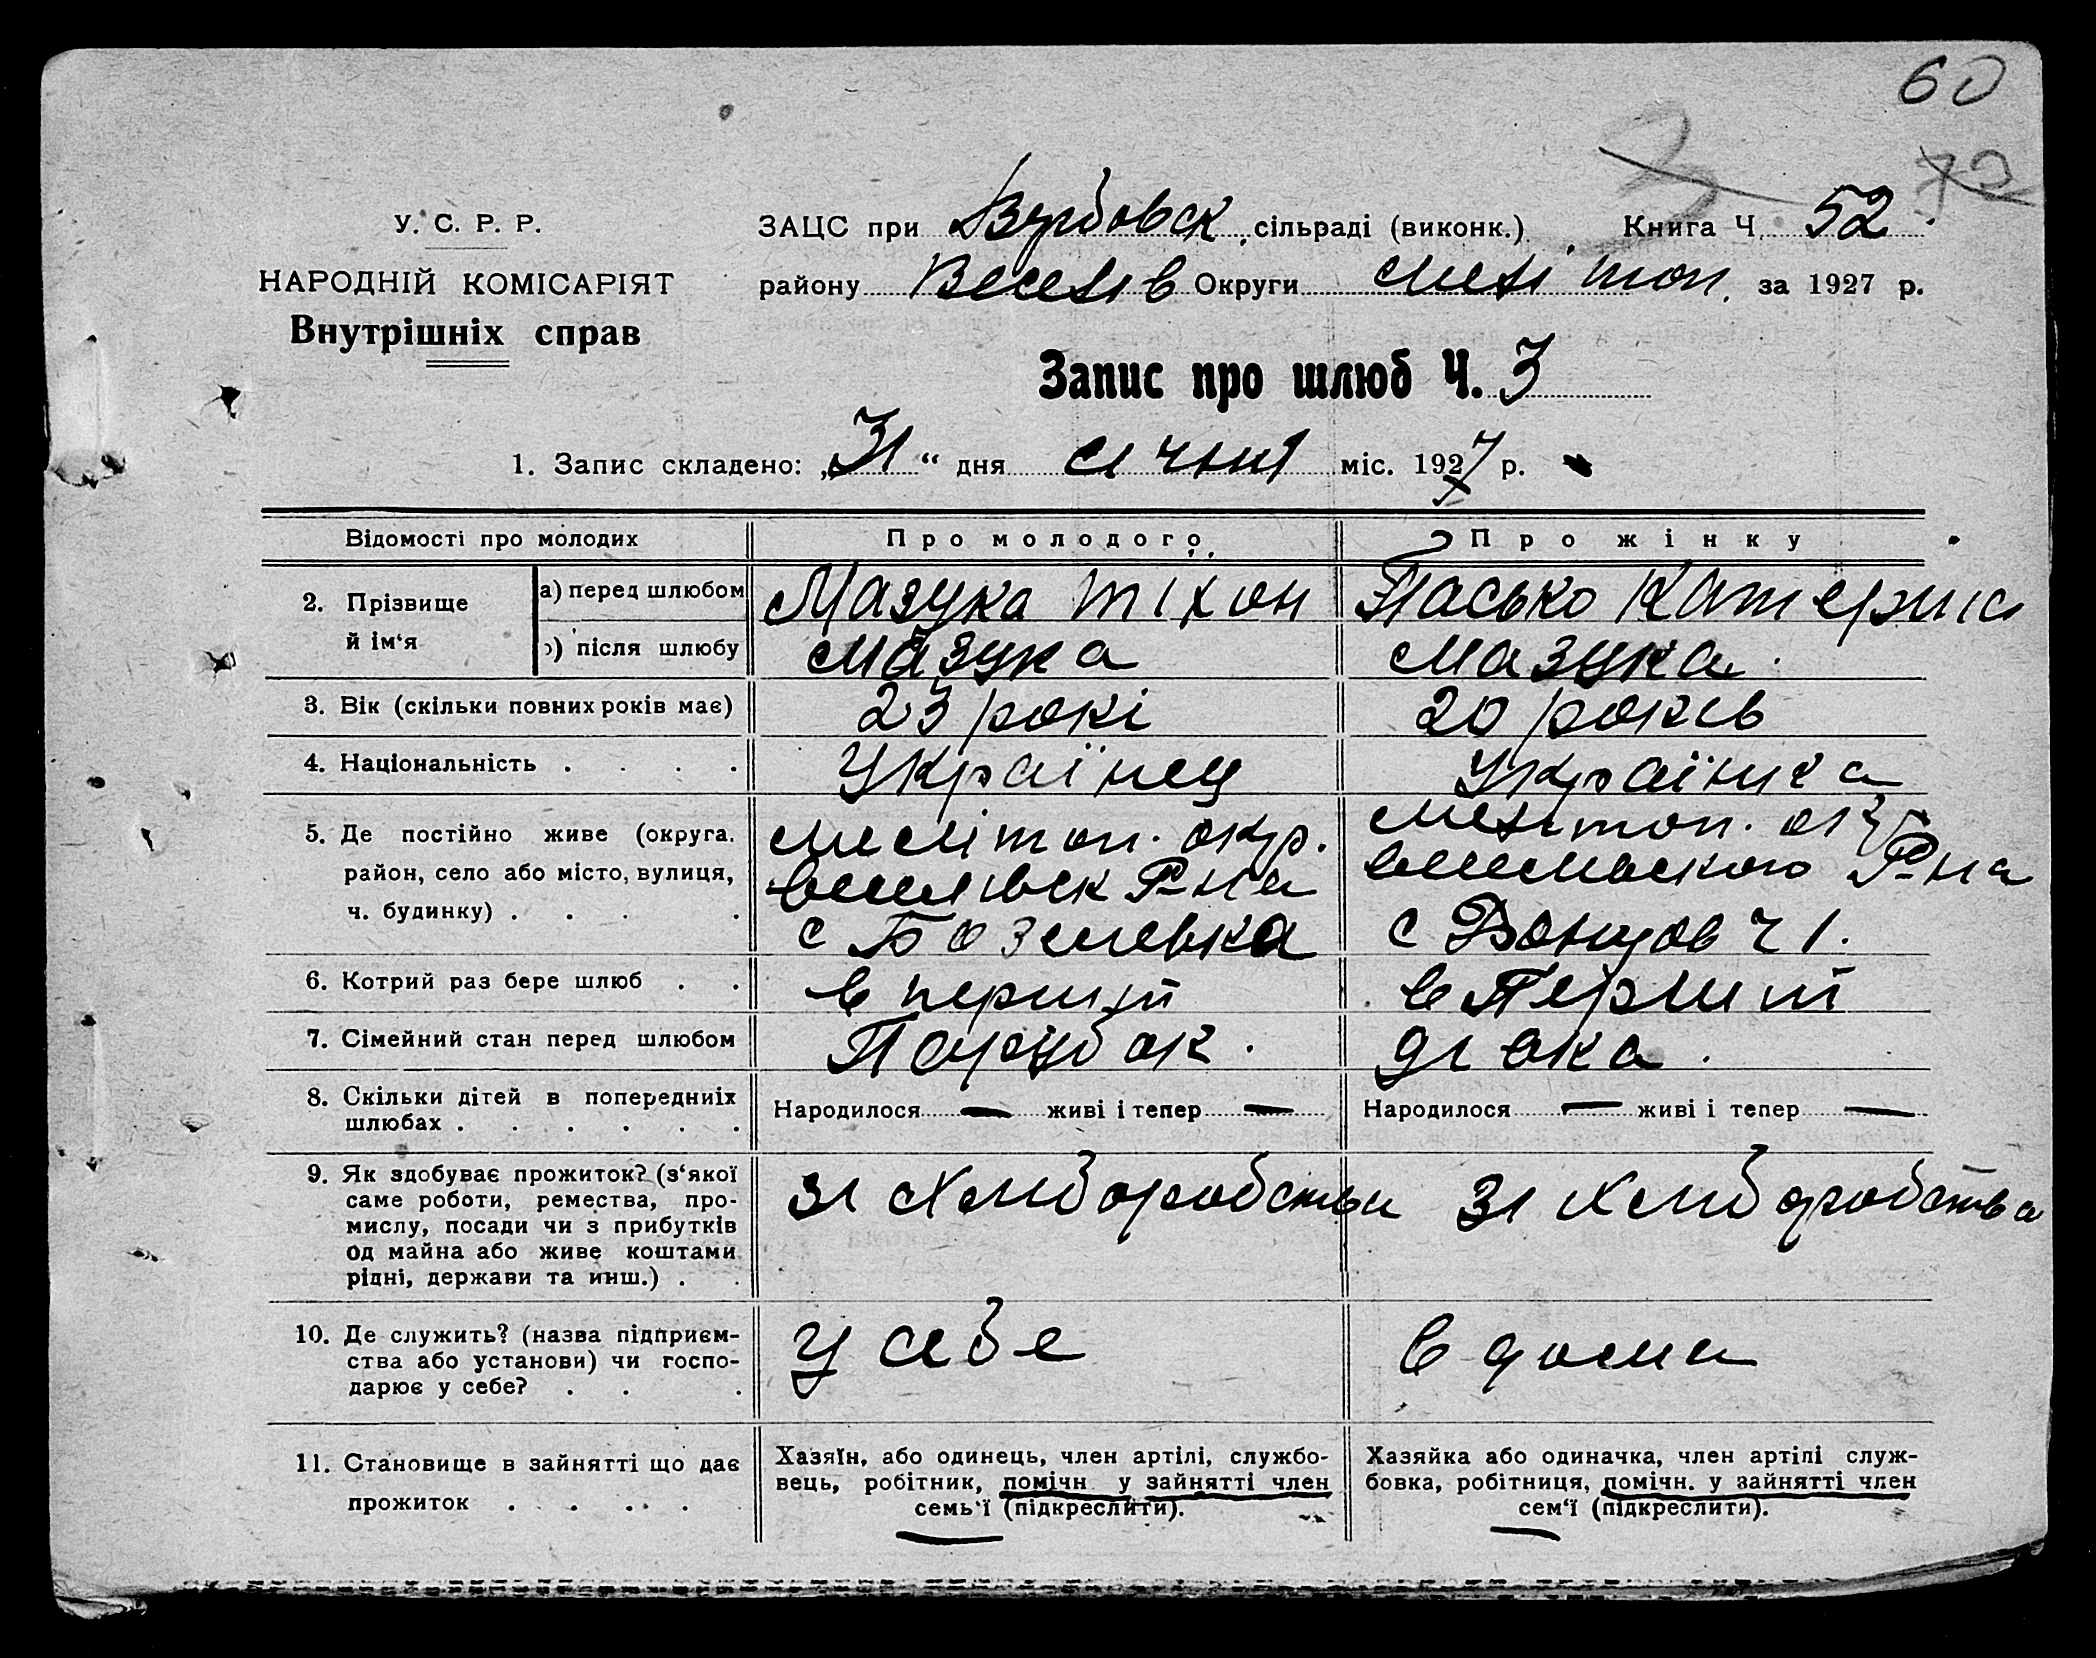 60
3
72
У. С. Р. Р.
НАРОДНІЙ КОМІСАРІЯТ
Внутрішніх справ
ЗАЦС при Вербовск. сільраді (виконк.) Книга Ч. 52
району Веселів Округи Меліт оп. за 1927 р.
Запис про шлюб Ч. 3
1. Запис складено: „31“ дня січня міс. 1927 р.
Відомості про молодих Про молодого Про жінку
2. Прізвище й ім‘я
а) перед шлюбом Мазука Тіхон Пасько Катерина
б) після шлюбу Мазука Мазука
3. Вік (скільки повних років має) 23 рокі 20 років
4. Національність . . . . Українец Українка
5. Де постійно живе (округа, Мелітоп. окр. Мелітоп. окр
район, село або місто, вулиця, Веселівск Р-на Веселівского Р-на
ч. будинку) . . . . с
6. Котрий раз бере шлюб . . в перший в Перший
7. Сімейний стан перед шлюбом Парубок. дівка.
8. Скільки дітей в попередниіх Народилося — живі і тепер — Народилося — живі і тепер —
шлюбах . . . . . .
9. Як здобуває прожиток? (з‘якої зі Хліборобства зі Хліборобства
саме роботи, ремества, про-
мислу, посади чи з прибутків
од майна або живе коштами
рідні, держави та инш.) . .
10. Де служить? (назва підприєм- у себе в дома
ства або установи) чи госпо-
дарює у себе? . . .
11. Становище в зайнятті що дає
прожиток . . . . .
Хазяїн, або одинець, член артілі, службо-
вець, робітник, помічн. у зайнятті член
семь‘ї (підкреслити).
Хазяйка або одиначка, член артілі служ-
бовка, робітниця, помічн. у зайнятті член
сем‘ї (підкреслити).